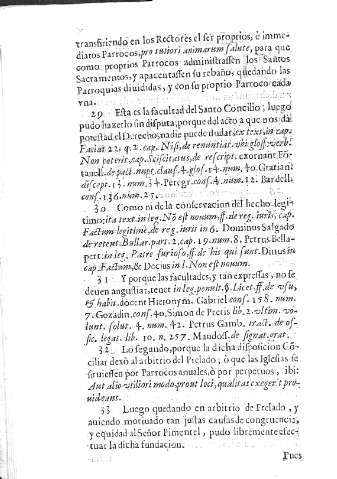 transfiriendo en los Rectores el ser proprios, è imme-
diatos Parrocos, pro tutiori animarum salute, para que
como proprios Parrocos administrassen los Santos
Sacramentos, y apacentassen su rebaño, quedando las
Parroquias divididas, y con su proprio Parroco cada
vna.
29 Esta es la facultad del Santo Concilio; luego
pudo hazerlo sin disputa, porque del acto à que nos dà
potestad el Derecho, nadie puede dudar, ex text. in cap.
Faciat 22. q. 2. cap. Nisi, de renuntiat. vbi gloss. verb.
Non poterit, cap. Sciscitatus, de rescript. exornant Fõ-
tanell. de pact. nupt. clausf. 4. glos. 14. num. 40. Gratian;
discept. 13. num. 34. Peregr. cons. 4. num. 12. Bardell.
cons. 136. num. 25.
30 Como ni de la conservacion del hecho legi-
timo; ita text. in leg. Nõ est nouum, ff. de reg. iuris, cap.
Factum legitimè, de reg. iuris in 6. Dominus Salgado
de retent. Bullar. part. 2. cap. 19. num. 8. Petrus Bella-
pert. in leg. Patre furioso, ff. de his qui sunt. Dinus in
cap. Factum, & Docius in l. Non est nouum.
31 Y porque las facultades, y tan expressas, no se
deuen angustiar, tenet in leg. penult. §. Licet, ff. de vsu,
& habit. docent Hieronym. Gabriel cons. 158. num.
7. Gozadin. cons. 40. Simon de Pretis lib. 2. vltim. vo-
lunt. solut. 4. num. 42. Petrus Gamb. tract. de of-
fic. legat. lib. 10. n. 257. Mandoss. de signat. grat.
32 Lo segundo, porque la dicha disposicion Cõ-
ciliar dexò al arbitrio del Prelado; ò que las Iglesias se
siruiessen por Parrocos anuales, ò por perpetuos, ibi:
Aut alio vtiliori modo, prout loci, qualitas exegerit pro-
uideant.
33 Luego quedando en arbitrio de Prelado, y
auiendo motiuado tan justas causas de congruencia,
y equidad al Señor Pimentel, pudo libremente efec-
tuar la dicha fundacion.
Pues